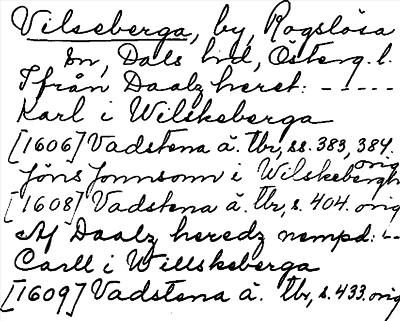 Vilseberga, by, Rogslösa
sn, Dals hd, Österg. l.
Ifrån Daalz heret: -----
Karl i Wilskeberga
[1606] Vadstena ä. tbr, ss. 383, 384. orig
Jöns Jonnsonn i Wilskebergh
[1608] Vadstena ä. tbr, s. 404. orig
Af Daalz heredz nempd: --
Carll i Willskeberga
[1609] Vadstena ä. tbr, s. 433. orig